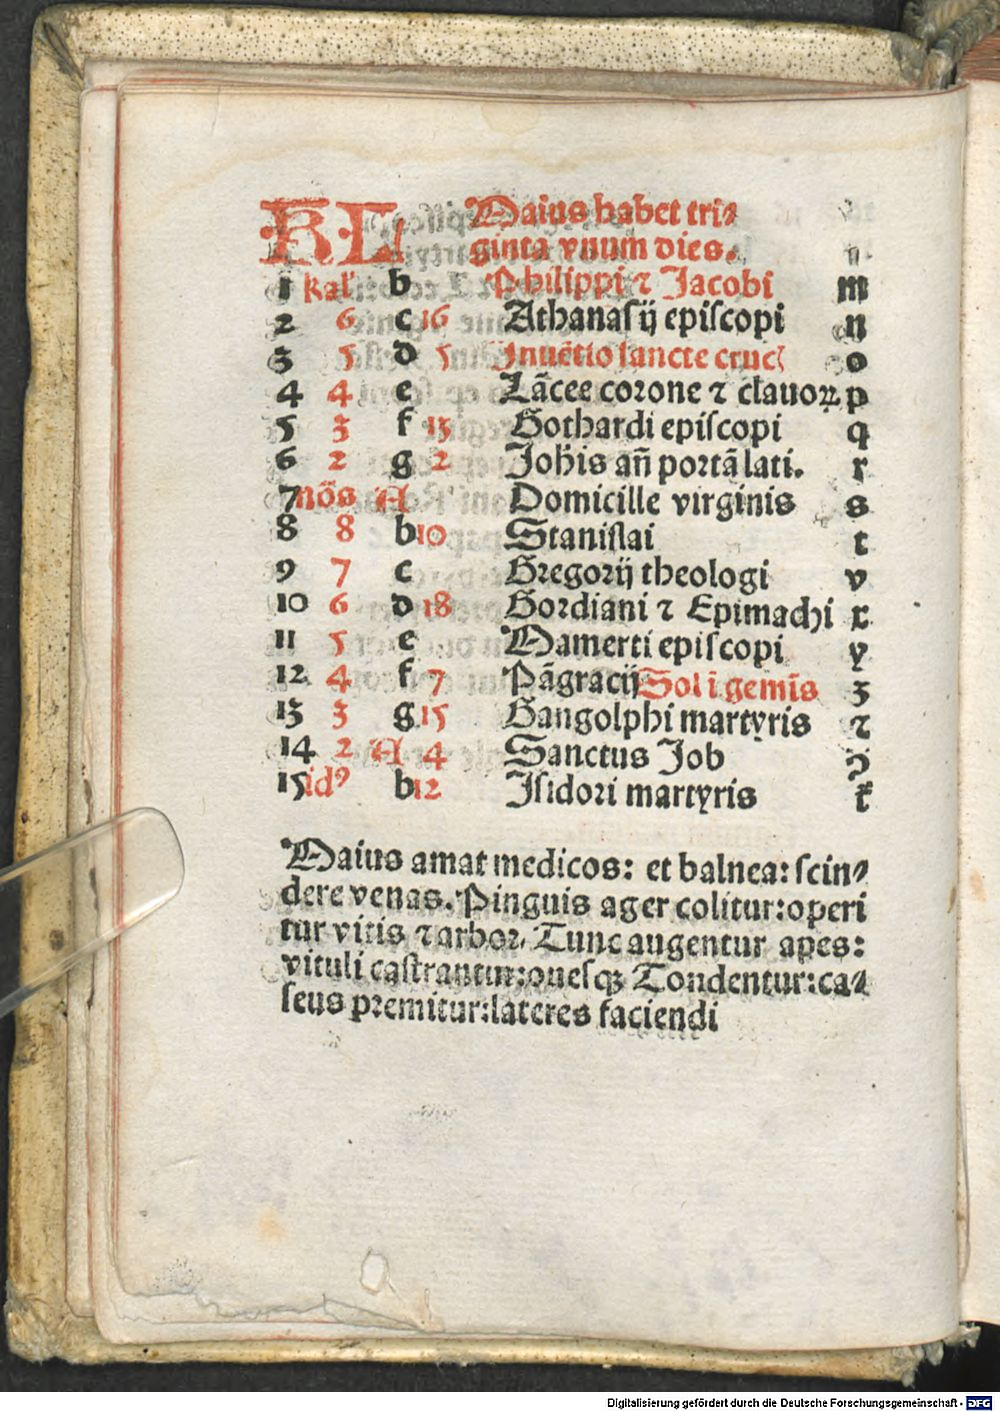 KL Maius habet tri⸗
ginta vnum dies.
1 kal' b Philippi ⁊ Jacobi m
2 6 c 16 Athanasij episcopi n
3 5 d 5 Jnuētio sancte cruc o
4 4 e Lācee corone ⁊ clauoꝝ p
5 3 f 13 Gothardi episcopi q
6 2 g 2 Joħis añ portā lati. r
7 nōs A Domicille virginis s
8 8 b 10 Stanislai t
9 7 c Gregorij theologi v
10 6 d 18 Gordiani ⁊ Epimachi x
11 5 e Mamerti episcopi y
12 4 f 7 Pāgracij Sol i gemīs z
13 3 g 15 Gangolphi martyris ⁊
14 2 A 4 Sanctus Job ꝯ
15 idꝰ b 12 Jsidori martyris
Maius amat medicos: et balnea: scin⸗
dere venas. Pinguis ager colitur: operi
tur vitis ⁊ arbor. Tunc augentur apes:
vituli castrantur: ouesqꝫ Tondentur: ca⸗
seus premitur: lateres faciendi
Digitalisierung gefördert durch die Deutsche Forschungsgemeinschaft - DFG